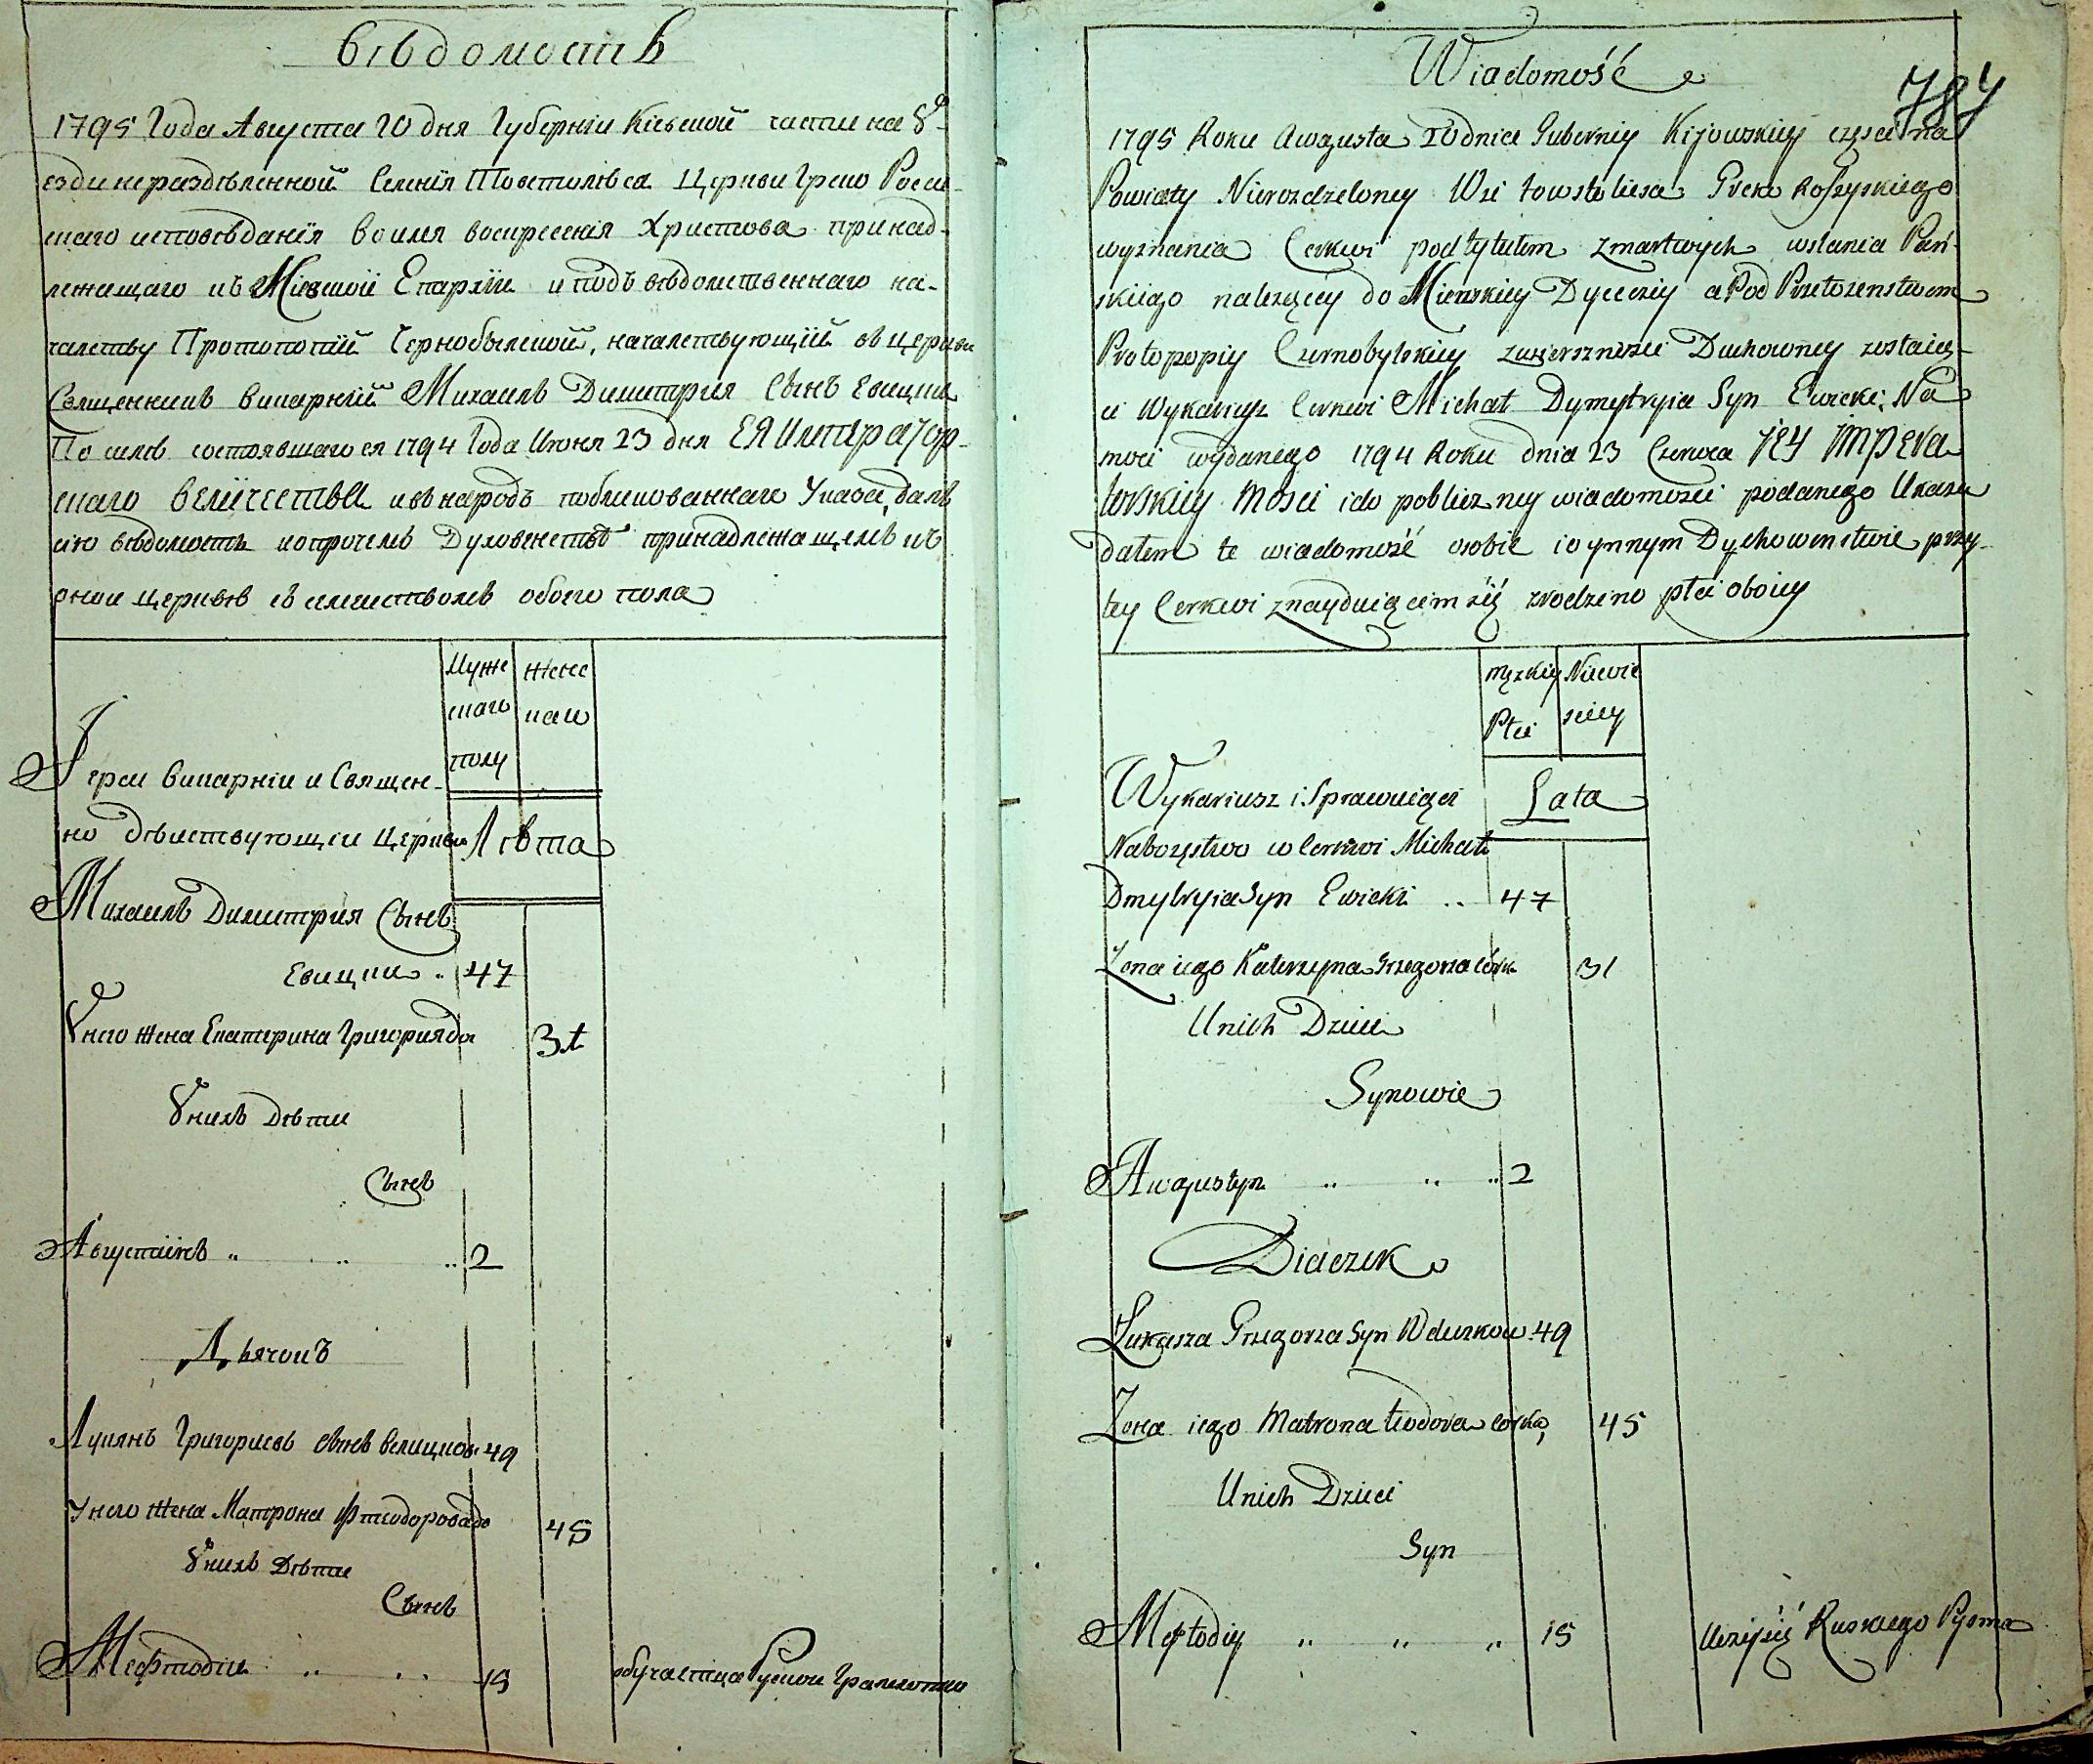 Вѣдомость
1795 Года Августа 20 дня Губерніи Кіевской части на У-
езди нераздѣленной Селенія Товстолѣса Церкви Греко Росси-
скаго исповѣданія во имя воскресенія Христова принад-
лежащаго къ Кіевской Епархіи и подъ вѣдомственнаго на-
чалству Протопопій Чернобылской, началствующій въ церкви
Священникъ викарній Михаилъ Димитрия Сынъ Евицки
По силѣ состоявшагося 1794 Года Июня 23 дня ЕЯ Император-
скаго величества и въ народъ публикованнаго Указа, далъ
сію вѣдомость и о прочемъ Духовенствѣ принадлежащемъ къ
оной церквѣ съ семействомъ обоего пола
Мужскаго полу
Женскаго
Іереи викарніи и Священ-
но дѣиствующіи Церкви
Лѣта
Михаилъ Димитрия Сынъ
Евицки .. 47
У него жена Екатерина Григория до 31
У нихъ Дѣти
Сынъ
Августинъ .. .. .. 2
Дьячокъ
Лукянъ Григориевъ сынъ Велицков 49
У него жена Матрона Фтеодорова до 45
У нихъ Дѣти
Сынъ
Мефтодіи .. .. 15 обучаетца Руской Грамоти
784
Wiadomość
1795 Roku Awgusta 20 dnia Gubernij Kijowskiey części na
Powiaty Nierozdzeloney Wsi Towstoliesa Greko Roszyskiego
wyznania Cerkwi pod tytułem Zmartwych wstania Pań-
skiego należącey do Kiewskiey Dyecezij a Pod Przełozenstwem
Protopopiy Czernobylskiey zwierzchności Duchowney zostaią-
ci Wykariusz Cerkwi Michał Dymytryia Syn Ewicki. Na
moci wydanego 1794 Roku dnia 23 Czerwca JEY IMPERA-
torskiey Mosci i do publiczney wiadomości podanego Ukazu
dałem te wiadomość o sobie i o ynnym Dychowenstwie przy-
tey Cerkwi znayduiącem się z rodzino płci oboiey
męzkiey Płci
Niewiesciey
Wykariusz i Sprawuiący
Lata
Nabożęstwo w Cerkwi Michał
Dmytryia Syn Ewicki .. 47
Żona iego Katerzyna Grzegorza Córk 31
U nich Dzieci
Synowie
Awgustyn .. .. .. 2
Diaczek
Łukasza Grzegorza Syn Weliczkow 49
Żona iego Matrona Teodora corka, 45
U nich Dzieci
Syn
Meftodiy .. .. .. 15 Uczy się Ruskiego Pysma